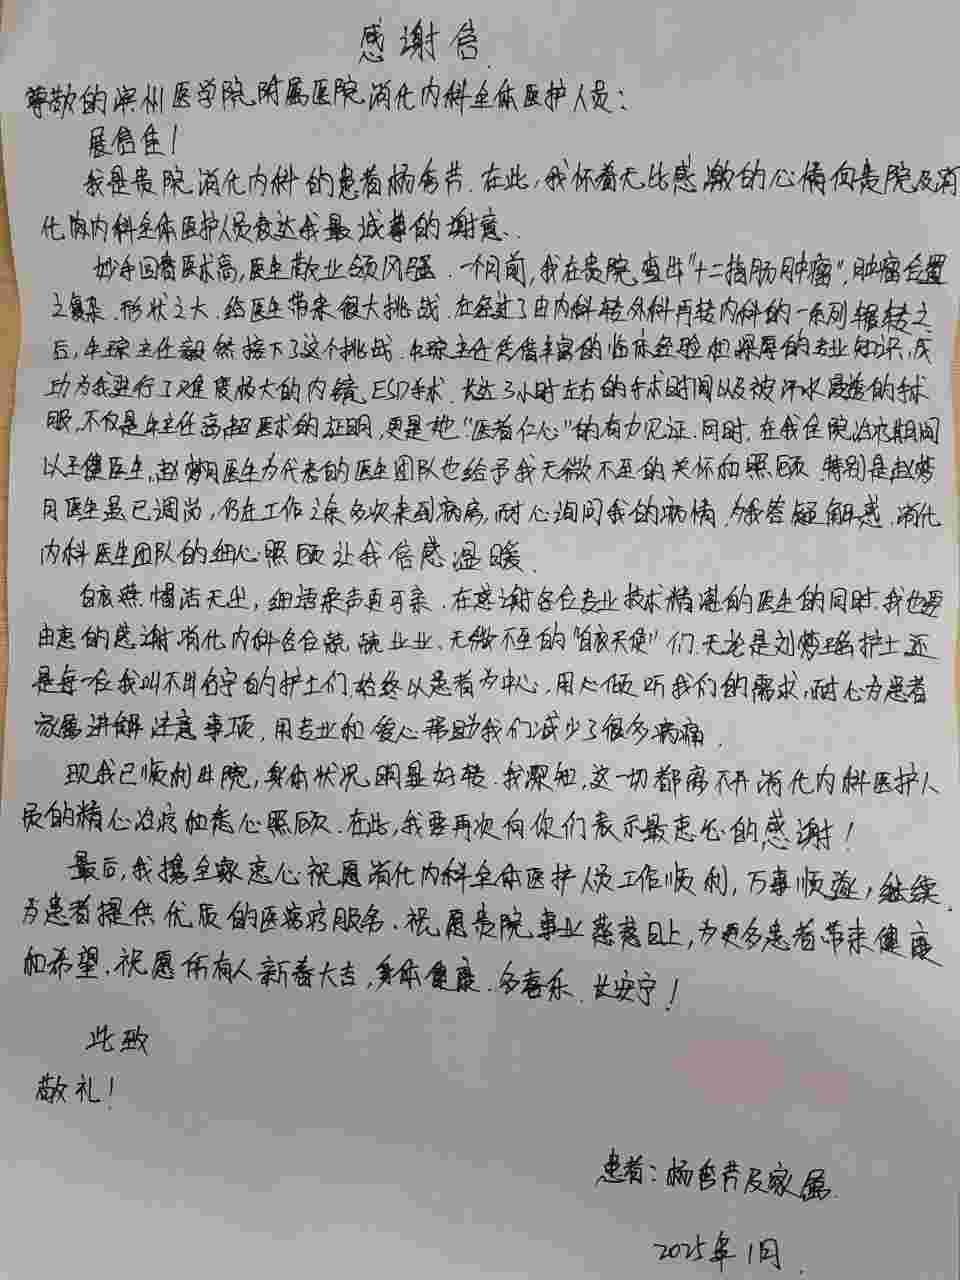 感谢信
尊敬的滨州医学院附属医院消化内科全体医护人员：
展信佳！
我是贵院消化内科的患者杨秀芹．在此，我怀着无比感激的心情向贵院及消
化内科全体医护人员表达我最诚挚的谢意．
妙手回春医术高，医生敬业领风骚．一个月前，我在贵院查出“十二指肠肿瘤”，肿瘤位置
之复杂．形状之大．给医生带来很大挑战．在经过了由内科转外科再转内科的一系列辗转之
后，牛琼主任毅然接下了这个挑战．牛琼主任凭借丰富的临床经验和深厚的专业知识，成
功为我进行了难度极大的内镜ESD手术．长达3小时左右的手术时间以及被汗水浸透的手术
服，不仅是牛主任高超医术的证明，更是她“医者仁心”的有力见证．同时，在我住院治疗期间
以王健医生，赵梦月医生为代表的医生团队也给予我无微不至的关怀和照顾．特别是赵梦
月医生虽已调岗，仍在工作之余多次来到病房，耐心询问我的病情．为我答疑解惑．消化
内科医生团队的细心照顾让我倍感温暖．
白衣燕帽洁无尘，细语柔声更可亲．在感谢各位专业技术精湛的医生的同时．我也要
由衷的感谢消化内科各位兢兢业业、无微不至的“白衣天使”们．无论是刘梦瑶护士还
是每一位我叫不出名字的护士们．始终以患者为中心，用心倾听我们的需求，耐心为患者
家属讲解注意事项，用专业和爱心帮助我们减少了很多病痛．
现我已顺利出院，身体状况明显好转．我深知，这一切都离不开消化内科医护人
员的精心治疗和悉心照顾．在此，我要再次向你们表示最衷心的感谢！
最后，我携全家衷心祝愿消化内科全体医护人员工作顺利，万事顺遂，继续
为患者提供优质的医疗服务．祝愿贵院事业蒸蒸日上，为更多患者带来健康
和希望．祝愿所有人新春大吉，身体健康．多喜乐．长安宁！
此致
敬礼！
患者：杨秀芹及家属
2025年1月．